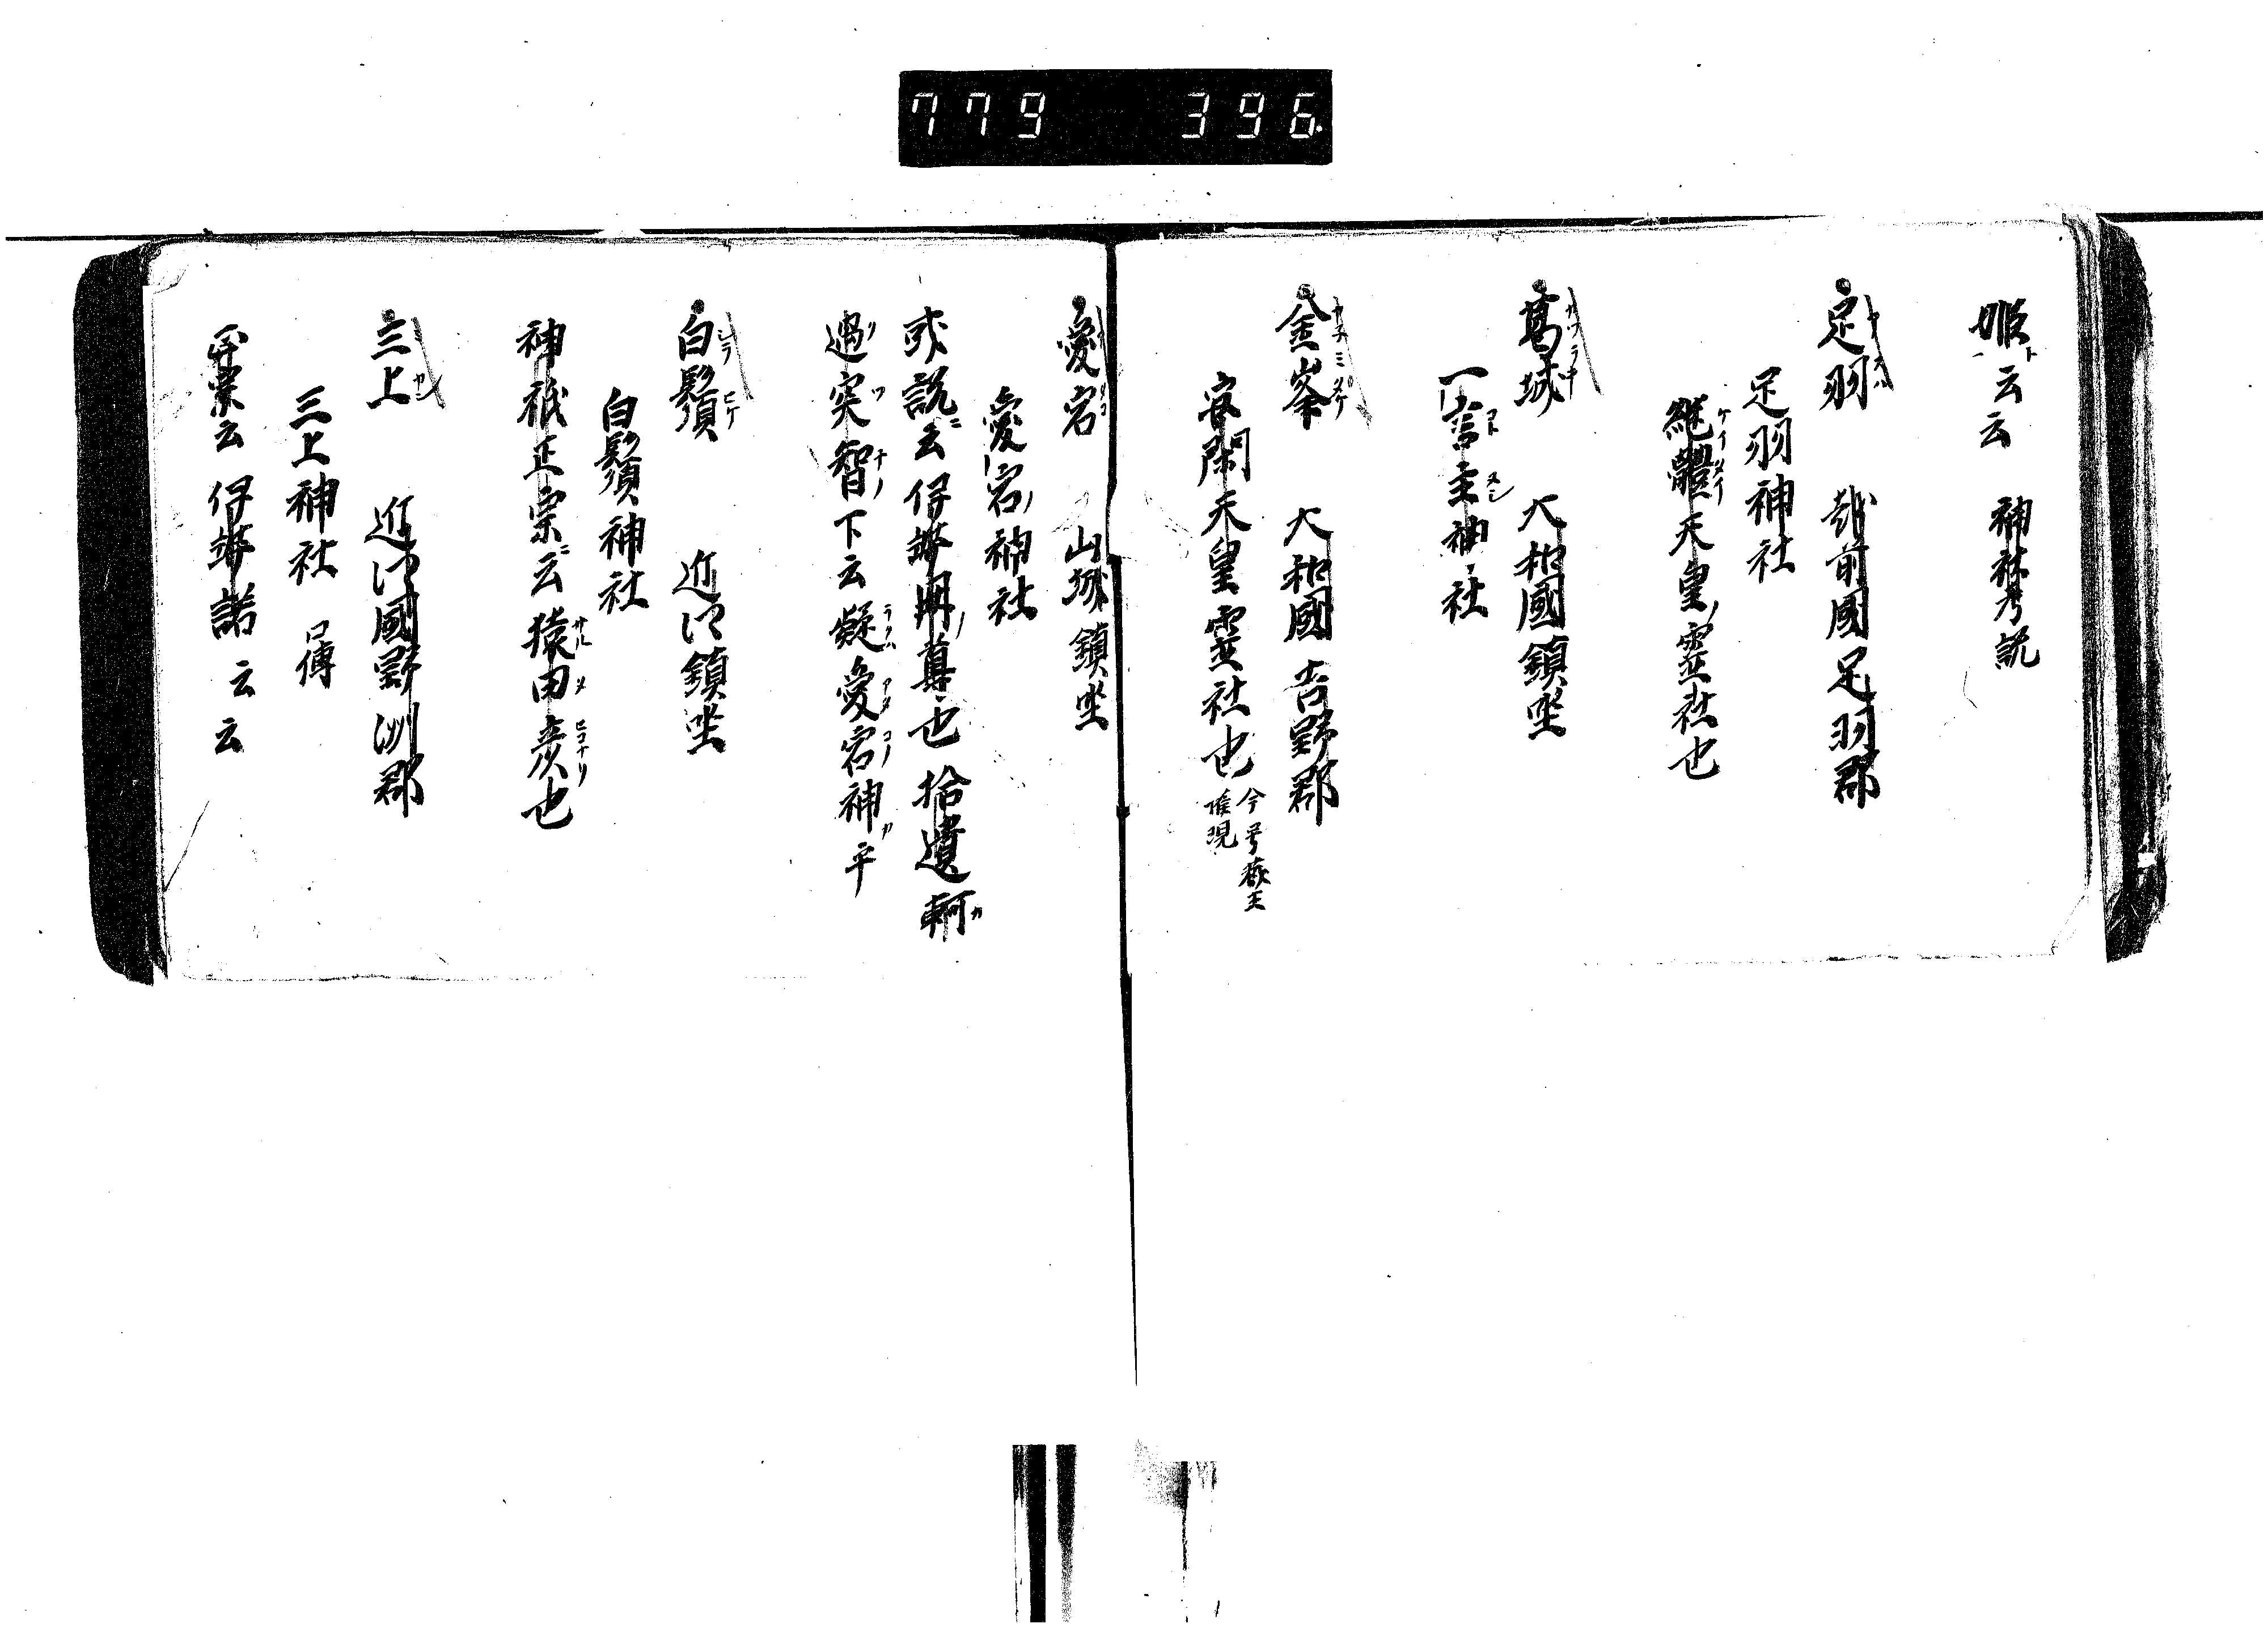 779 396
姫ト云云 神社考説
足羽 越前國足羽郡
足羽神社
継體天皇ノ霊社也
葛城 大和國鎮坐
一言主神社
金峯 大和國吉野郡
安閑天皇霊社也 今号蔵王
権現
愛宕 山城鎮坐
愛宕ノ神社
或説ニ云伊弉冊ノ尊也拾遺軻
遇突智ノ下云疑愛宕ノ神カ乎
白鬚 近江鎮坐
白鬚神社
神祇正宗ニ云猿田彦也
三上 近江國野洲郡
三上神社 口傳
云伊弉諾云云